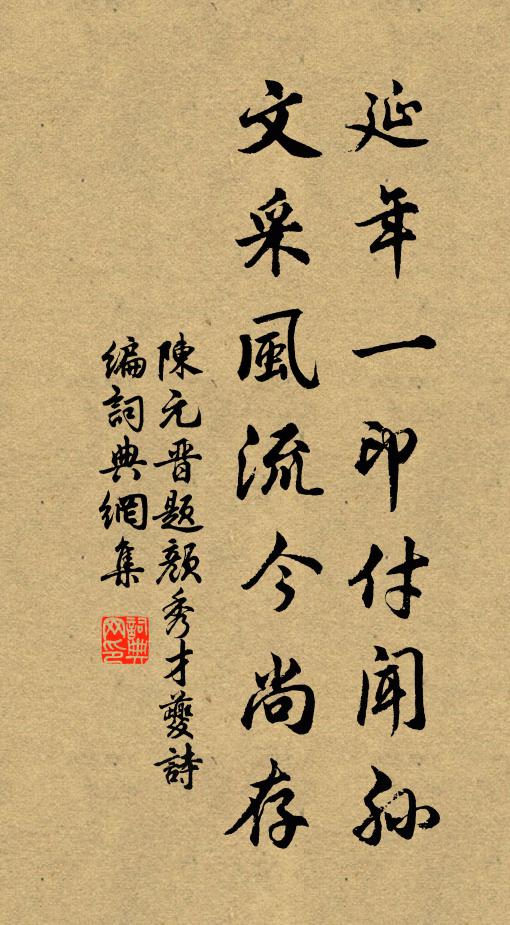 延年一印付闻孙
文采風流今尚存
陳元晋題顏秀才夔詩
编詞典網集
詞典網印